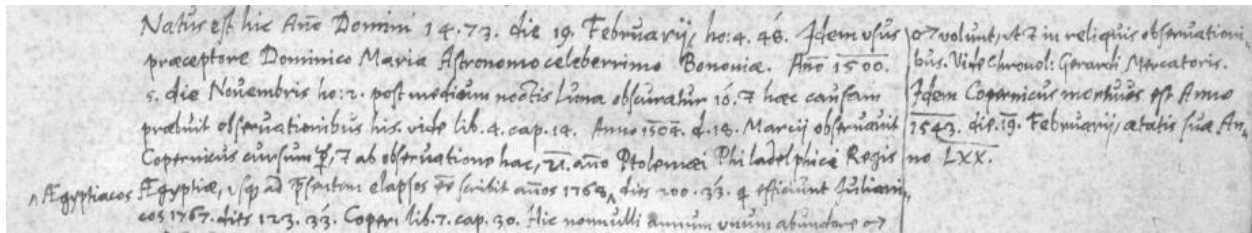 Natus est hic Año Domini 14.73. die 19. Februarij, ho: 4. 48. Idem usus
præceptore Dominico Maria Astronomo celeberrimo Bononiæ. Año 1500.
die Nouembris ho: 2. post medium noctis Luna obscuratur hæc causam
præbuit obseruationibus his. vide lib. 4. cap. 14. Anno 1504. d. 18. Marcij obseruauit
Copernicus cursum ab obseruatione hac, 21. año Ptolemæi Philadelphici Regis
^ Ægyptiacos Ægyptiæ, ad elapsos scribit años 1768 ^ dies 200. 33. efficiunt Juliani„
cos 1767. dies 123. 33. Coper: lib. 7. cap. 30. Hic nonnulli annum unum abundare
volunt, vt in reliquis obseruationi„
bus. Vide Chronol: Gerardi Mercatoris.
Idem Copernicus mortuus est Anno
1543. die. 19. Februarij, ætatis suæ An„
no LXX.